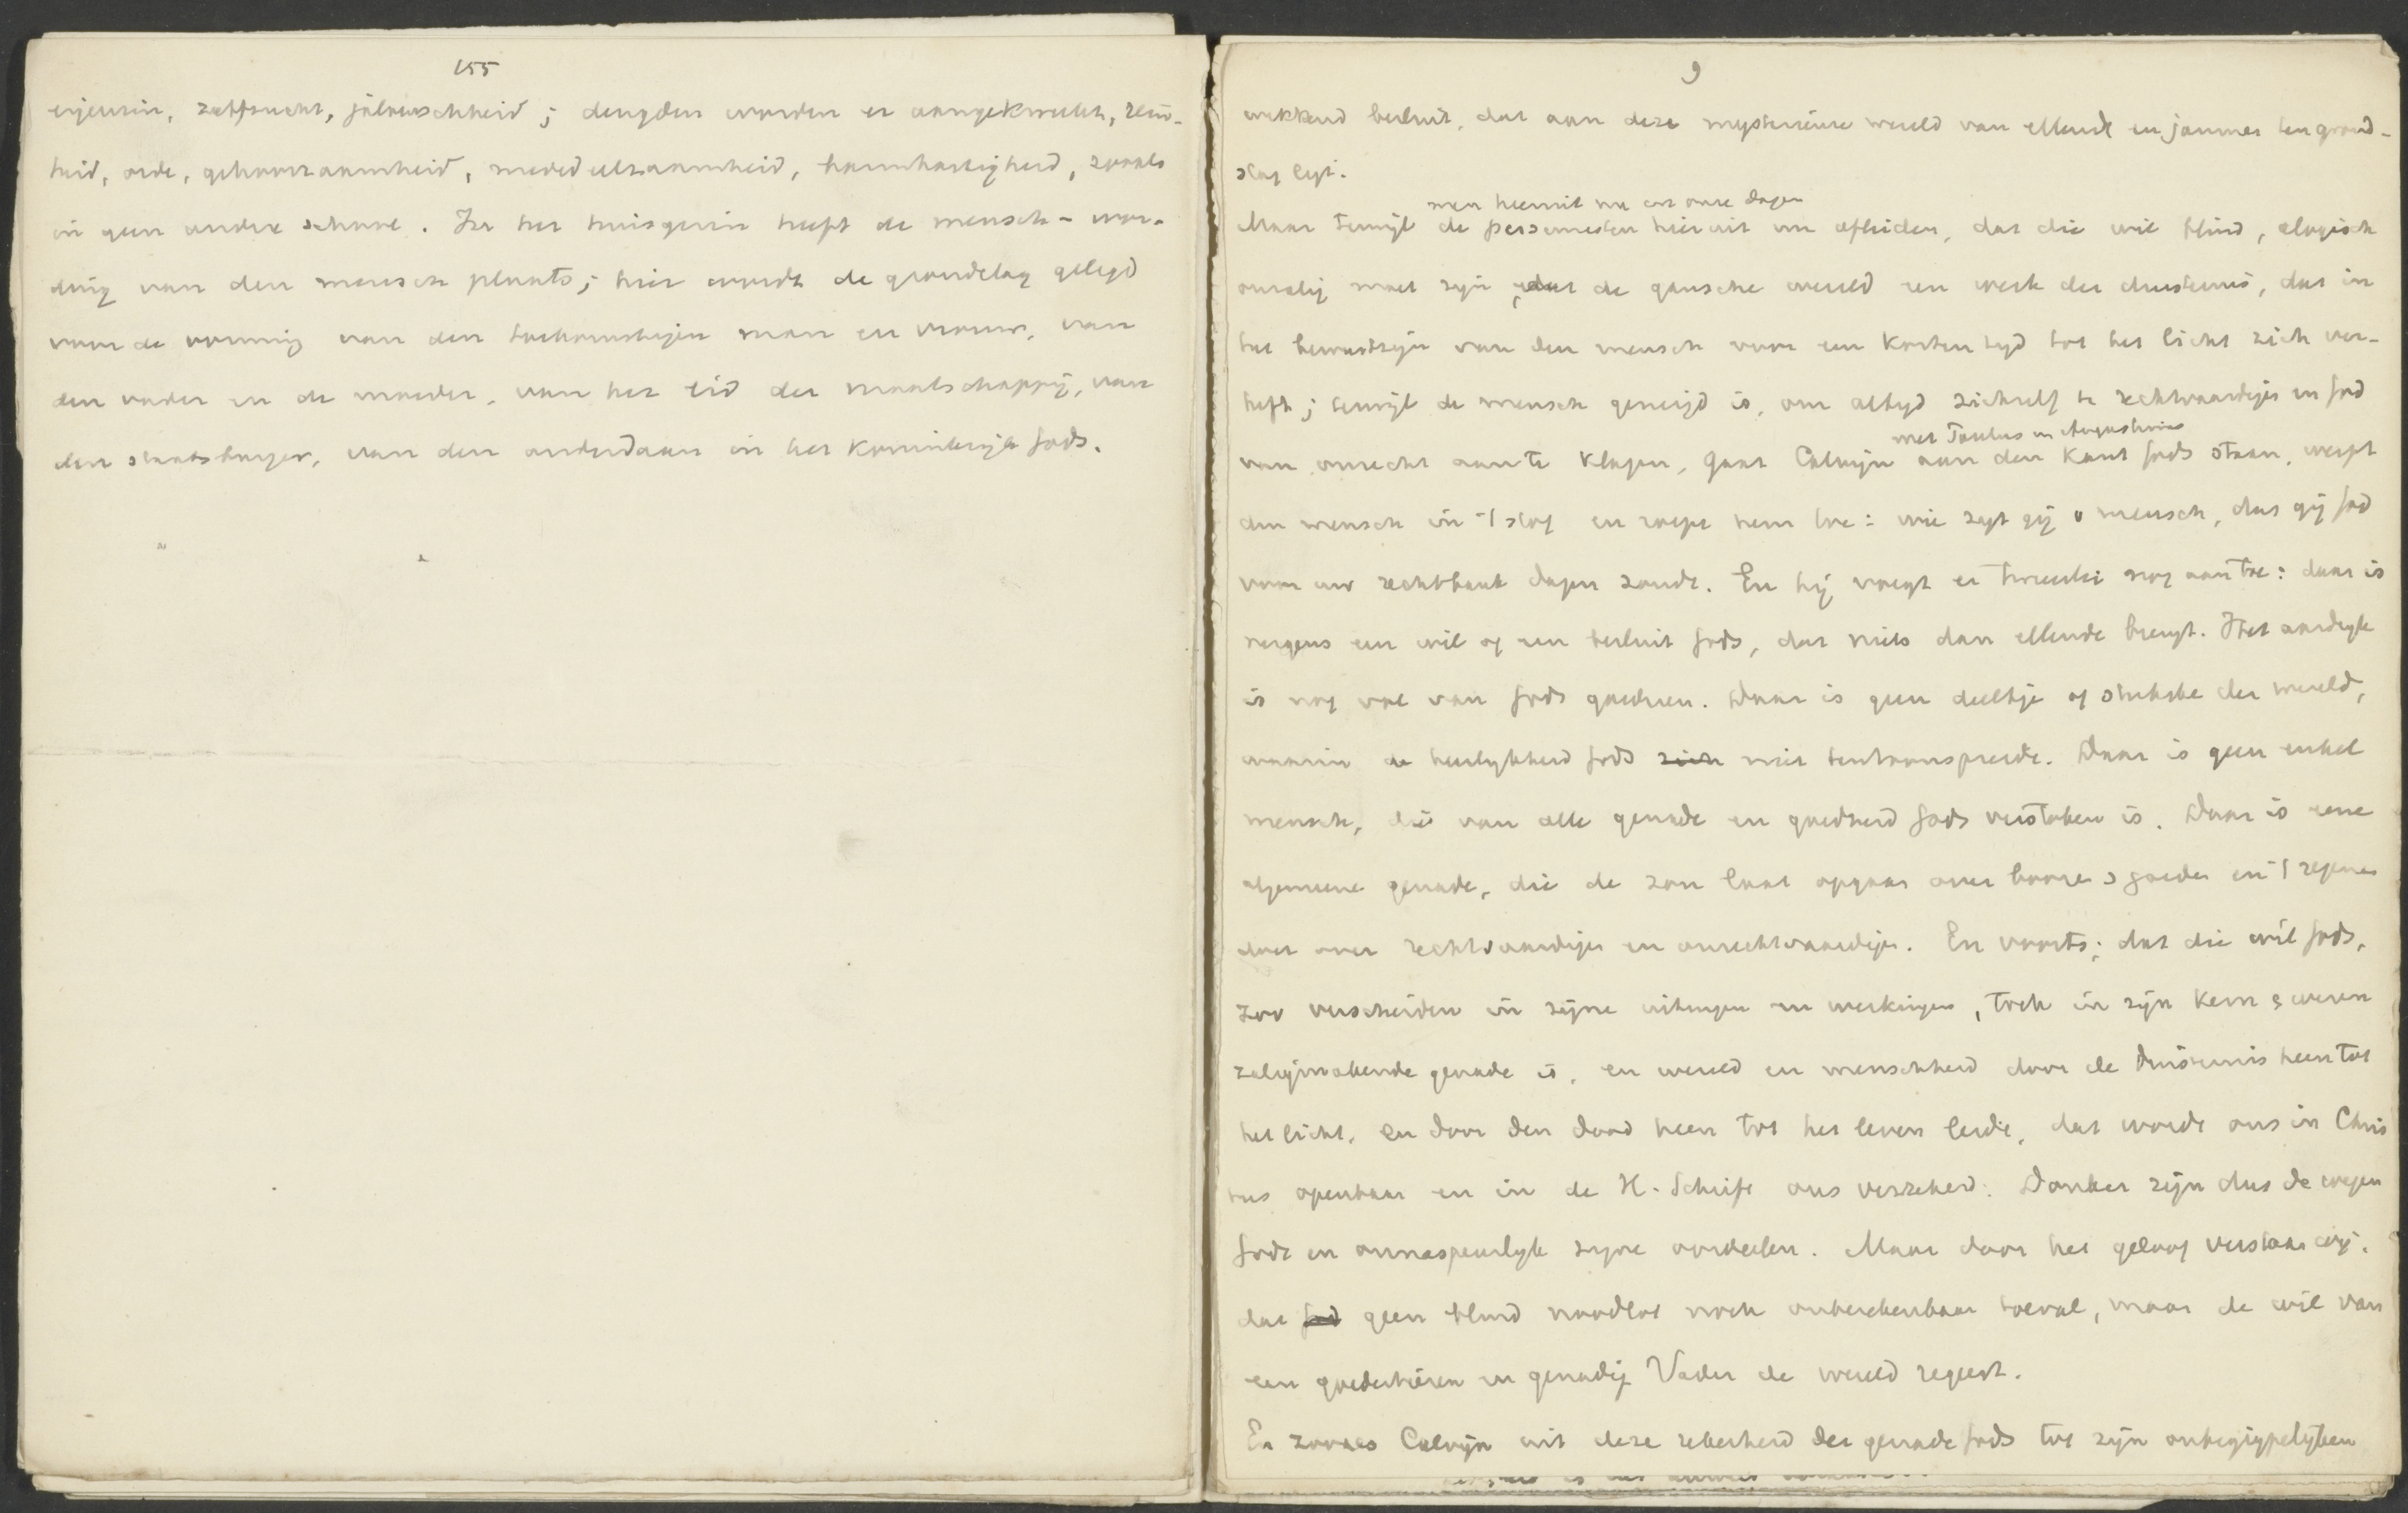 155
eigenzin, zelfzucht, jaloerschheid; deugden worden er aangekweekt, rein-
heid, orde, gehoorzaamheid, mededeelzaamheid, barmhartigheid, zooals
in geen andere school. In het huisgezin heeft de mensch-wor-
ding van den mensch plaats; hier wordt de grondslag gelegd
voor de vorming van den toekomstigen man en vrouw, van
den vader en de moeder, van het lid der maatschappij, van
den staatsburger, van den onderdaan in het Koninkrijk Gods.
9
wekkend besluit, dat aan deze mysterieuse wereld van ellende en jammer ten grond-
slag ligt.
men heeruit nu in onze dagen
Maar terwijl de pessimisten hieruit nu afleiden, dat die wil blind, alogisch
onzalig moet zijn, dat de gansche wereld een werk der duisternis, dat in
het bewustzijn van den mensch voor een korten tijd tot het licht zich ver-
heft; terwijl de mensch geneigd is, om altijd zichzelf te rechtvaardigen en God
met Paulus en Augustinus
van onrecht aan te klagen, gaat Calvijn aan den kant Gods staan, werpt
den mensch in 't stof en roept hem toe: wie zijt gij o mensch, dat gij God
voor uw rechtbank dagen zoudt. En hij voegt er tweeërlei nog aan toe: daar is
nergens een wil of een besluit Gods, dat niets dan ellende brengt. Het aardrijk
is nog vol van Gods goedheen. Daar is geen deeltje of stukske der wereld,
waarin de heerlijkheid Gods zich niet tentoonspreidt. Daar is geen enkel
mensch, die van alle genade en goedheid Gods verstoken is. Daar is eene
algemeene genade, die de zon laat opgaan over booze en goeden en 't regenen
doet over rechtvaardigen en onrechtvaardigen. En voorts; dat die wil Gods,
zoo verscheiden in zijne uitingen en werkingen, toch in zijn kern en wezen
zaligmakende genade is, en wereld en menschheid door de duisternis heen tot
het licht, en door den dood heen tot het leven leidt, dat wordt ons in Chris
tus openbaar en in de H. Schrift ons verzekerd. Donker zijn dus de wegen
Gods en onnaspeurlijk zijne oordeelen. Maar door het geloof verstaan wij,
dat God geen blind noodlot noch onberekenbaar toeval, maar de wil van
een goedertieren en genadig Vader de wereld regeert.
En zooals Calvijn uit deze zekerheid der genade Gods tot zijn onbegrijpelijken